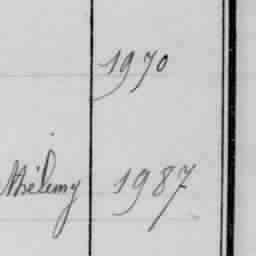 1970
thélemy 1987